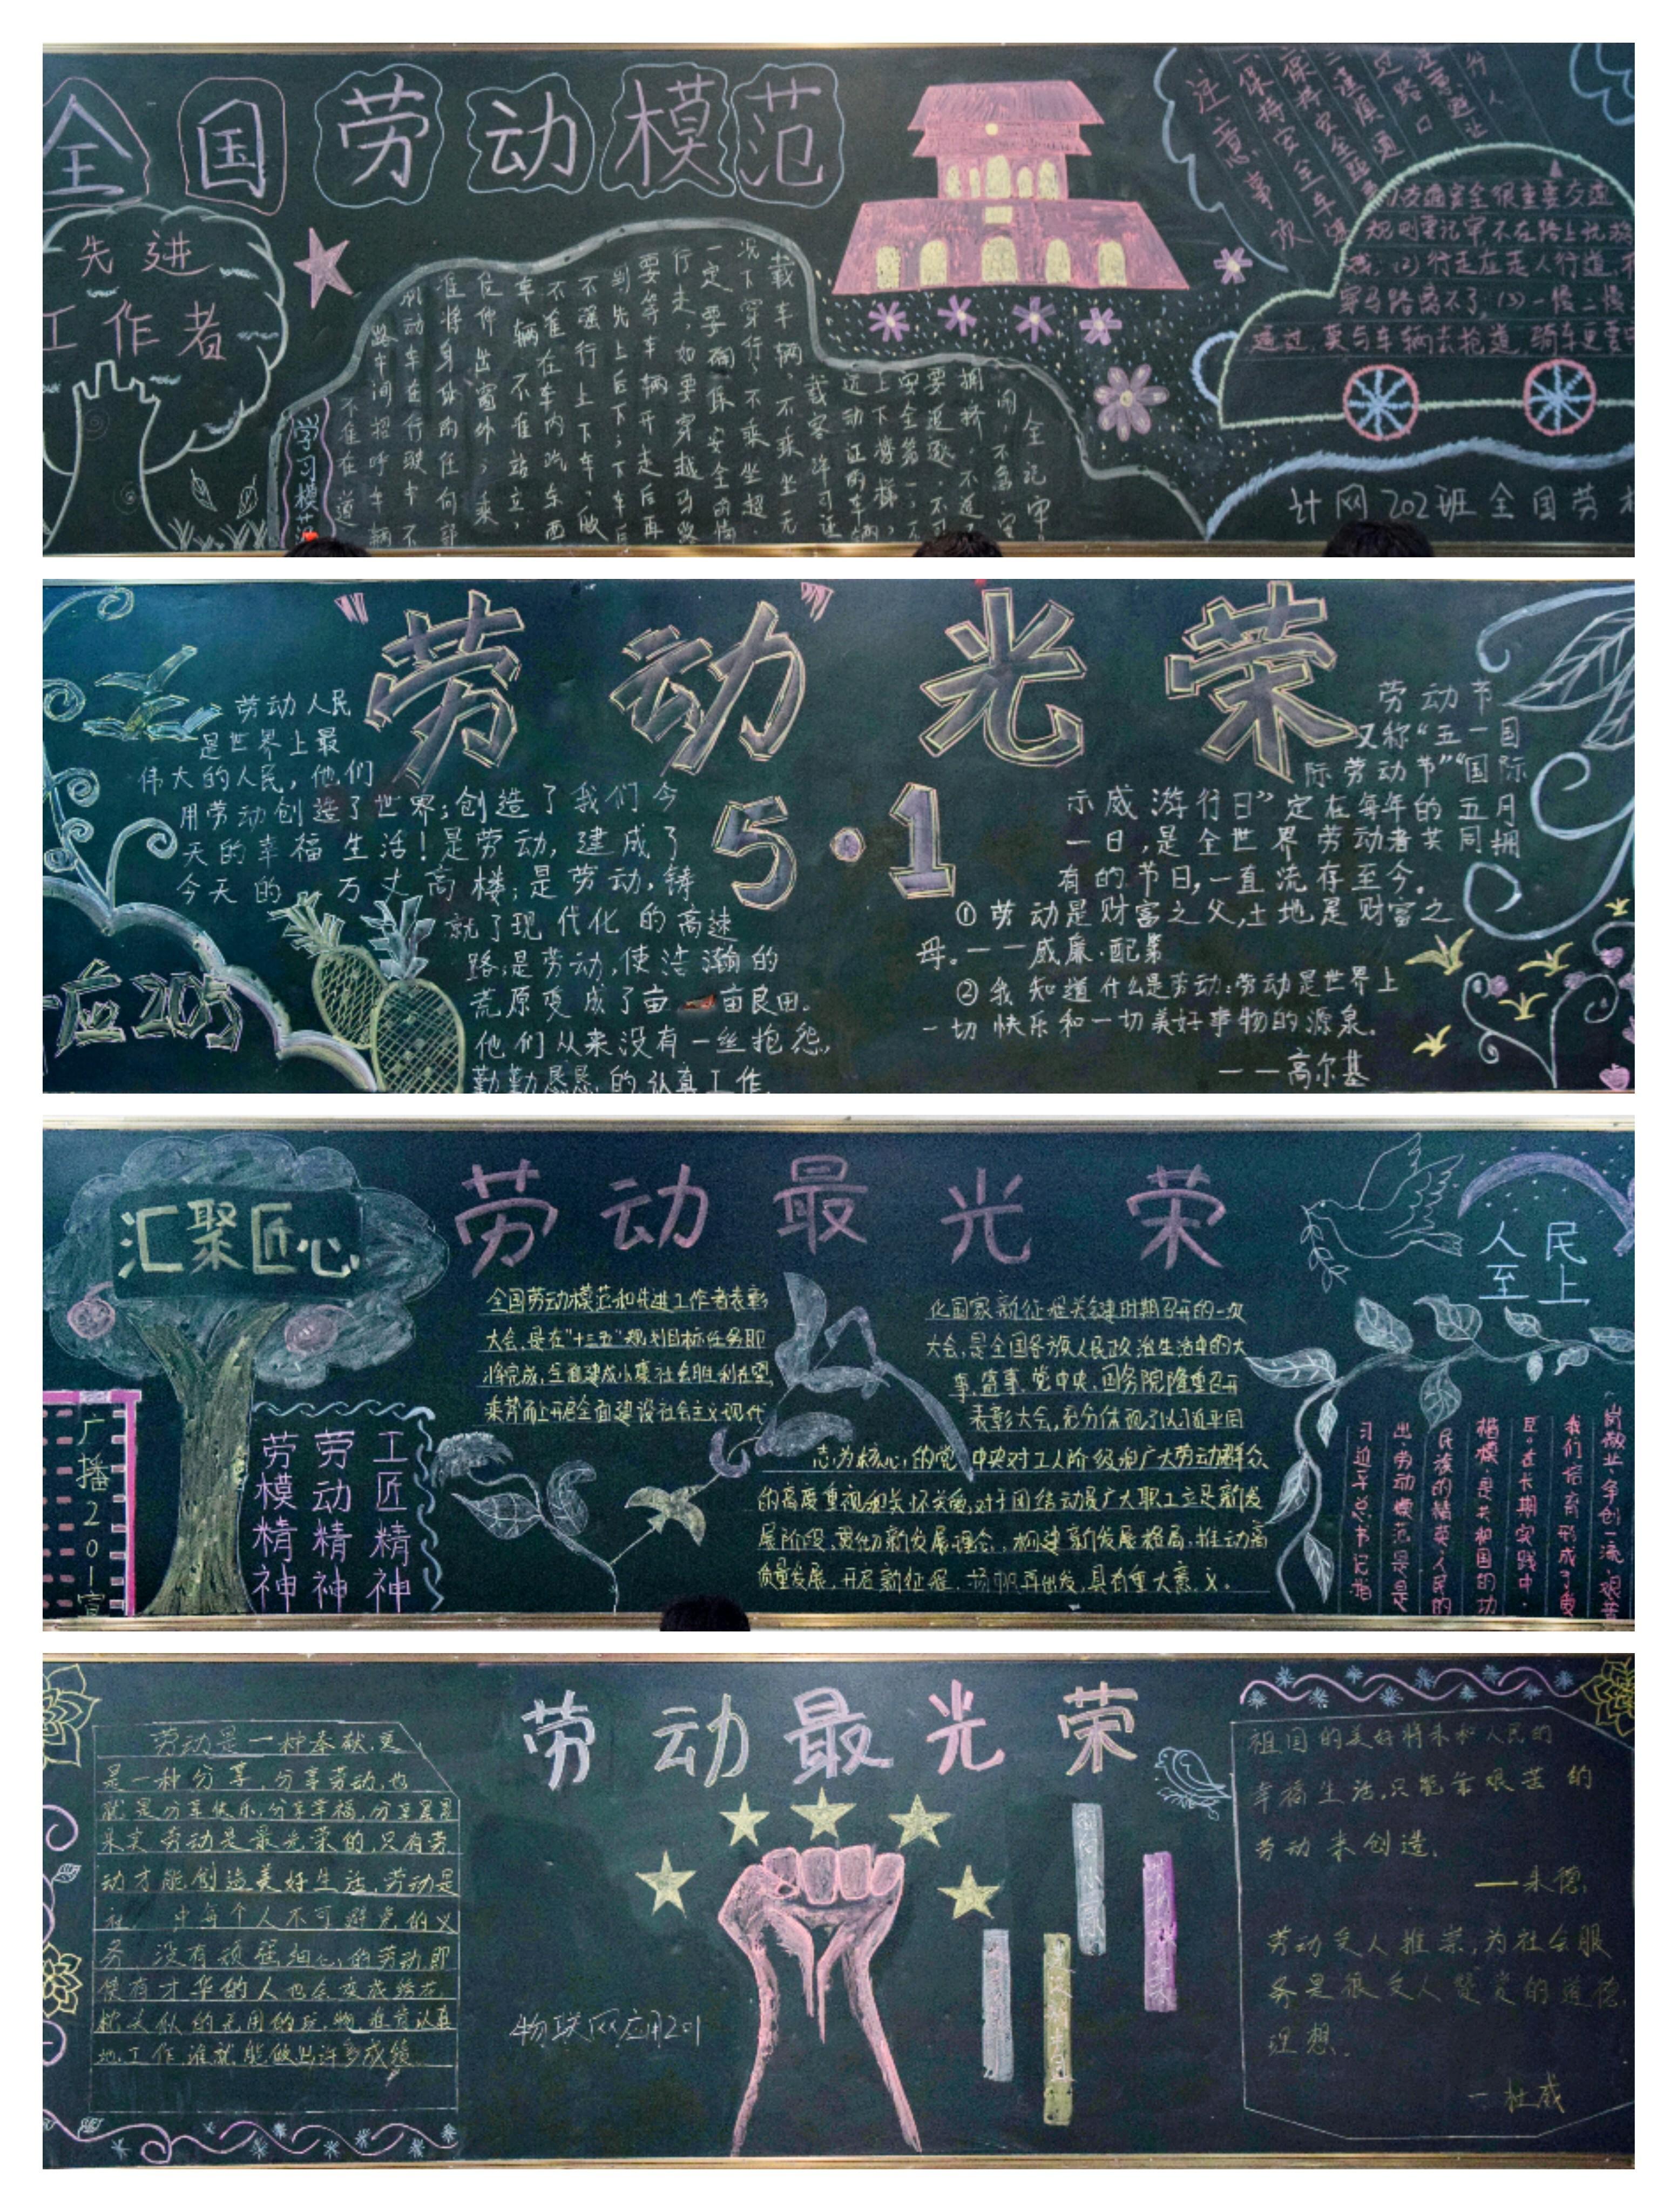 全国劳动模范
先进
工作者
学习模范
不准在道
路中间招呼车辆
机动车在行驶中不
准将身体的任何部
位伸出窗外，乘
车辆不准站立，
不准在车内吃东西
不强行上下车，做
到先上后下，下车后
要等车辆开走后再
行走，如要穿越马路
一定要确保安全的情
况下穿行，不乘坐超
载车辆，不乘坐无
载客许可证
运动证的车辆，
上下楼梯，
安全第一，不
要追逐，不可
拥挤，不
闹，不忘安
全记牢
注意事项
一保持安全车速
保持安全距离
谨慎通
过路口
注意避让
行人
交通安全很重要交通
规则要记牢，不在路上玩游
戏；(2)行走应走人行道，
穿马路离不了；(3)一慢二慢
通过，莫与车辆去抢道，骑车更要
计网202班全国劳
“劳动”光荣
5·1
劳动人民
是世界上最
伟大的人民，他们
用劳动创造了世界；创造了我们今
天的幸福生活！是劳动，建成了
今天的万丈高楼；是劳动，铸
就了现代化的高速
路；是劳动，使浩瀚的
荒原变成了亩亩良田。
他们从来没有一丝抱怨，
勤勤恳恳的认真工作.
应205
劳动节
又称“五一国
际劳动节”“国际
示威游行日”定在每年的五月
一日，是全世界劳动者共同拥
有的节日，一直流存至今。
①劳动是财富之父，土地是财富之
母。——威廉·配第
②我知道什么是劳动：劳动是世界上
一切快乐和一切美好事物的源泉。
——高尔基
汇聚匠心
劳动最光荣
人民
至上
广播201宣
劳模精神
劳动精神
工匠精神
全国劳动模范和先进工作者表彰
大会，是在“十三五”规划目标任务即
将完成，全面建成小康社会胜利在望，
乘势而上开启全面建设社会主义现代
化国家新征程关键时期召开的一次
大会，是全国各族人民政治生活中的大
事、盛事，党中央、国务院隆重召开
表彰大会，充分体现了以习近平同
志为核心的党中央对工人阶级和广大劳动群众
的高度重视和关怀关爱，对于团结动员广大职工立足新发
展阶段，贯彻新发展理念，构建新发展格局，推动高
质量发展，开启新征程，扬帆再出发，具有重大意义。
习近平总书记指
出，劳动模范是
民族的精英人民的
楷模，是共和国的功
臣，在长期实践中，
我们培育形成了爱
岗敬业、争创一流、艰苦
劳动最光荣
劳动是一种奉献，更
是一种分享，分享劳动，也
就是分享快乐，分享幸福，分享
果实，劳动是最光荣的，只有劳
动才能创造美好生活，劳动是
社 中每个人不可避免的义
务 没有顽强细心的劳动，即
使有才华的人也会变成绣花
枕头似的无用的玩物，谁肯认真
地工作谁就能做出许多成绩
物联网应用201
祖国的美好将来和人民的
幸福生活，只能靠艰苦的
劳动来创造。
——朱德
劳动受人推崇，为社会服
务是很受人赞赏的道德
理想。
—杜威